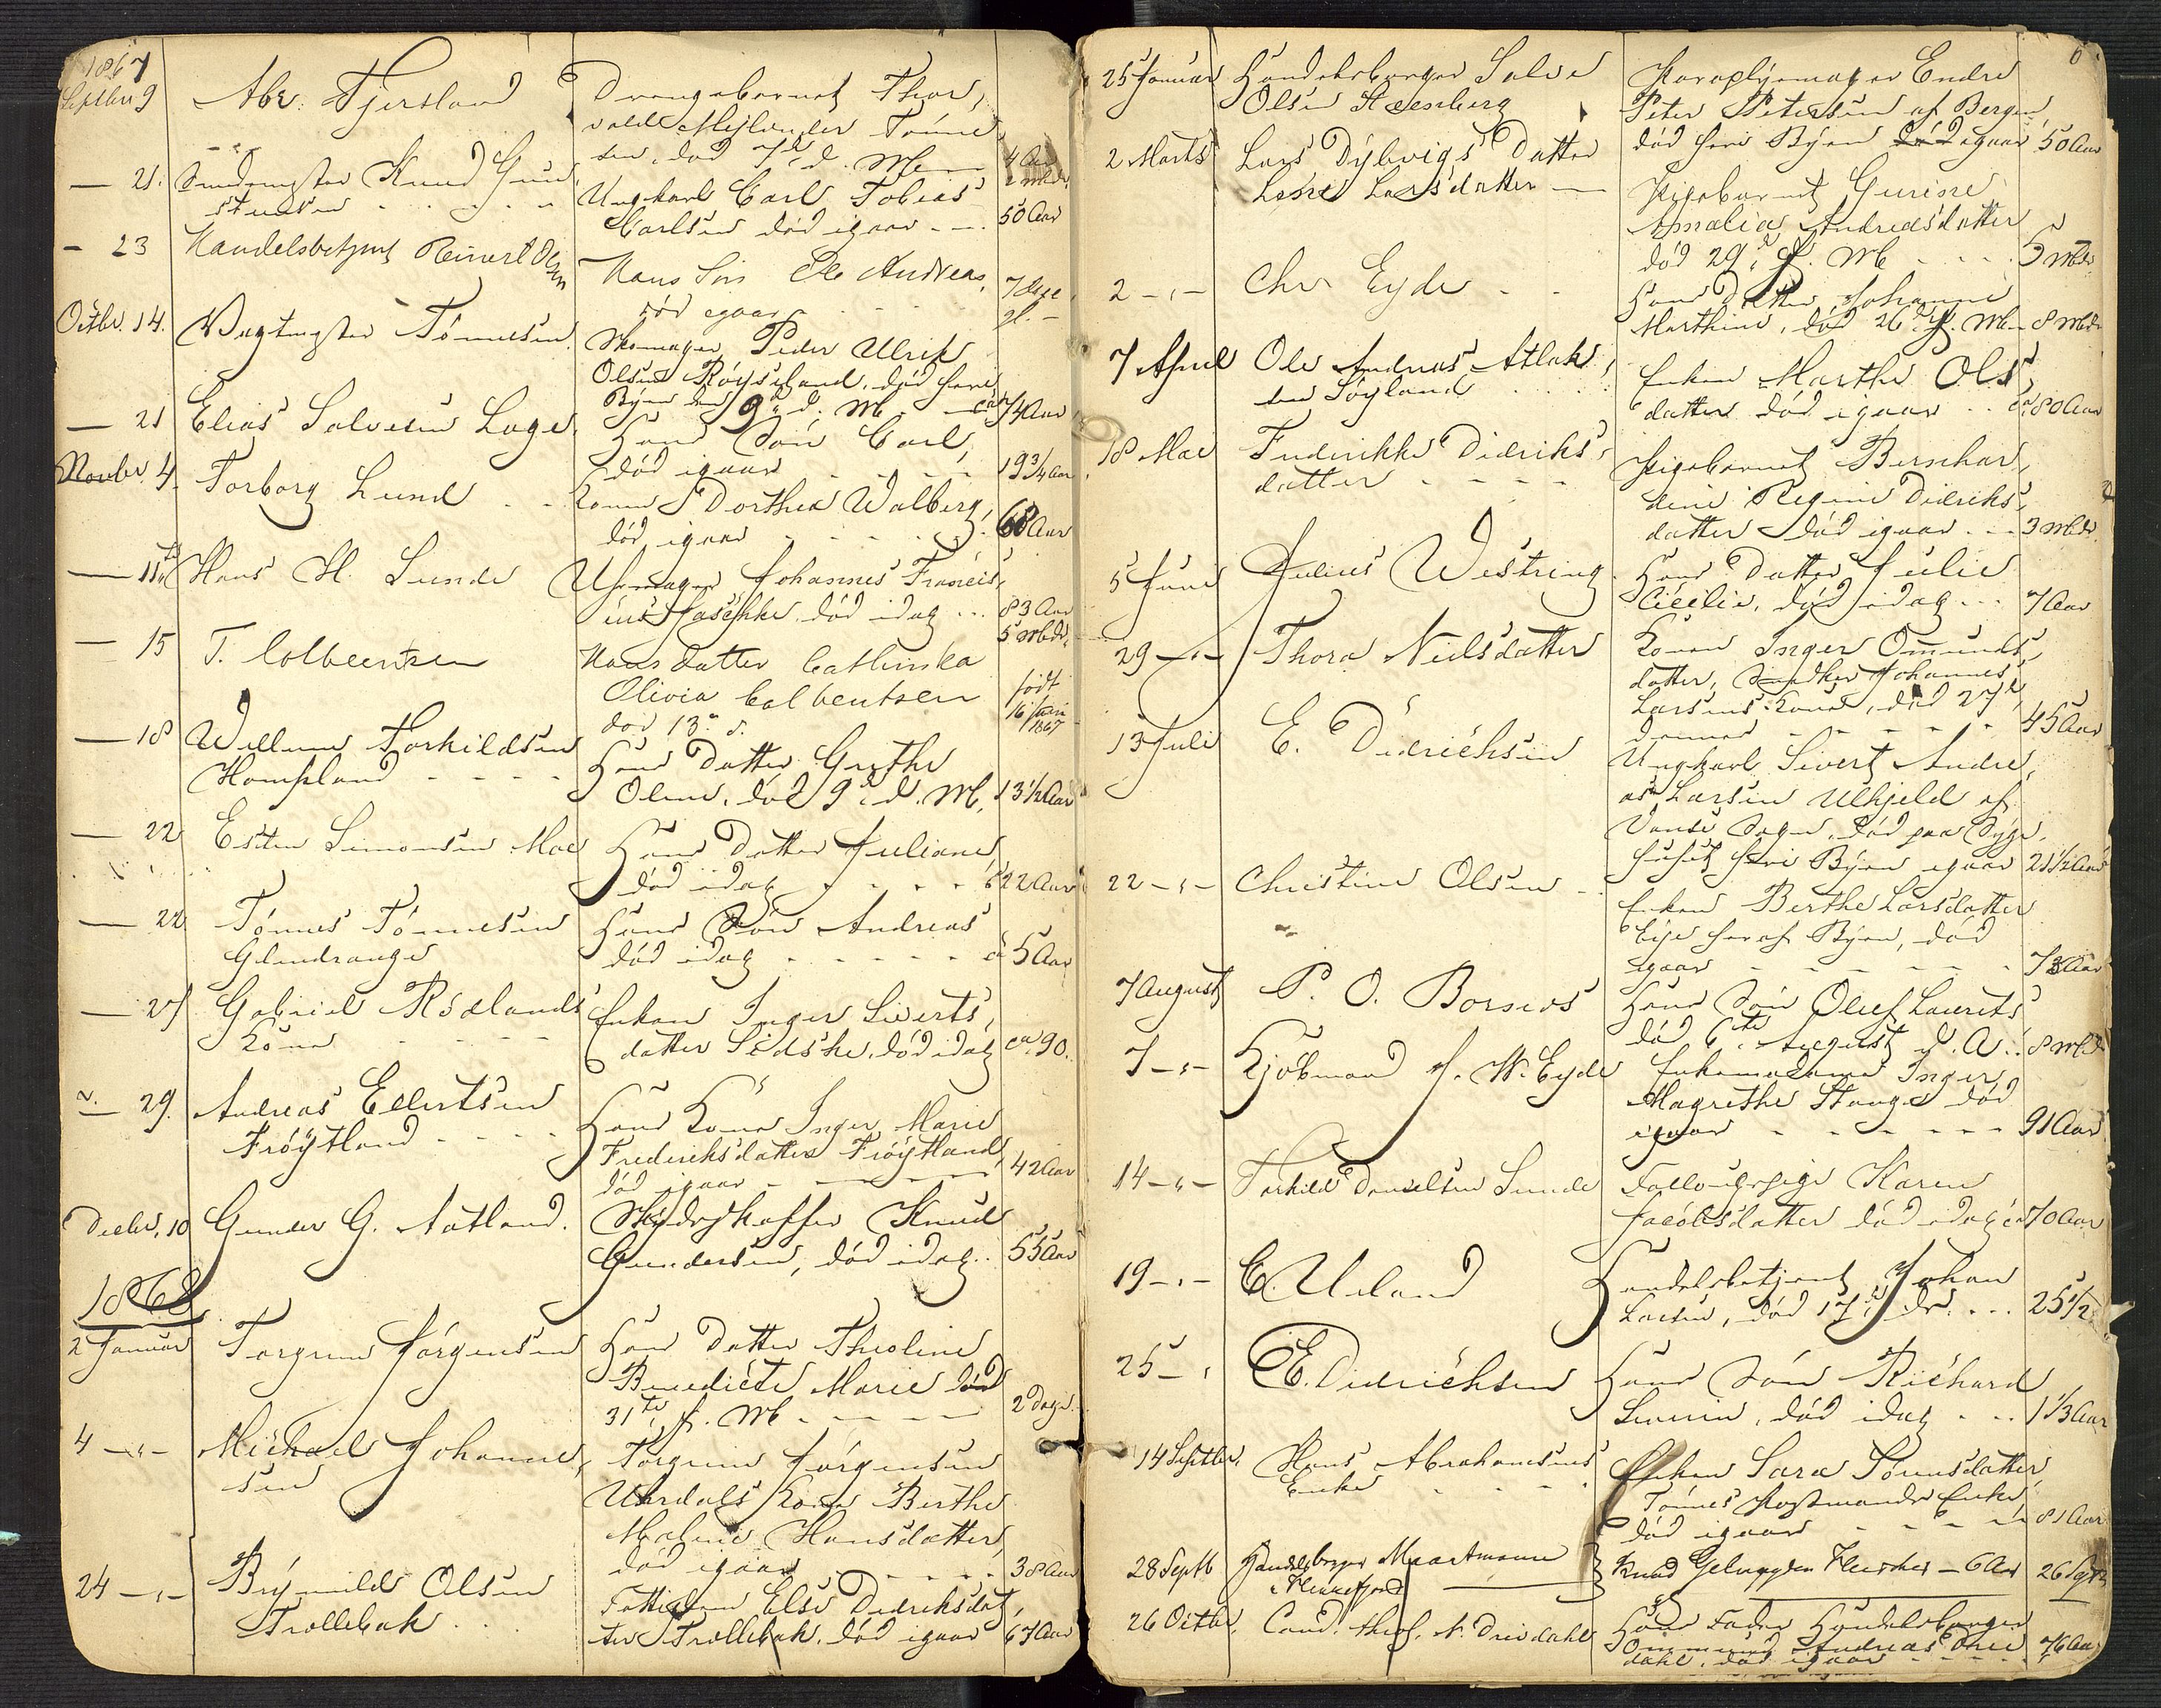 1867
Septbr 9 Abr. Fjersland Drengebarnet Thor,
valdt Mejlænder Tönne,
sen, död 7d d. M. 4 Aar
2 Mdr.
— 21. Knud Gun
stensen Ungkarl Carl Tobias
Carlsen död igaar 50 Aar
— 23 Handelsbetjent Reinert Olsen
Hans Sön Ole Andreas,
död igaar 7 Uge
gl.
Octbr. 14. Vagtmester Tönnesen. Skomager Peder Ulrik
Olsen Röyseland, död heri
Byen den 9d d. M. ca 74 Aar
— 21 Elias Salvesen Lage. Hans Sön Carl,
död igaar 19 3/4 Aar
Novbr. 4. Torborg Lund Konen Dorthea Walberg,
död igaar 68 Aar
— 15 Hans H. Sunde Uhrmager Johannes Francis,
cus Jaschke, död idag 83 Aar
5 Mdr.
— 15 T. Colbentsen Hans datter Cathinka
Olivia Colbentsen
död 13de d. født
16 Juni
1867
— 18 Willum Torkildsen
Hompland Hans Datter Grethe
Oline, död 9d d. M. 13 1/2 Aar
— 22 Esten Simonsen Moe Hans Datter Juliane,
död idag ca 22 Aar
— 22 Tönnes Tönnesen
Glendrange Hans Sön Andreas
död idag ca 5 Aar
— 27 Gabriel Rödlands
Kone Enken Inger Siverts,
datter Sedske, död idag ca 90.
— 29. Andreas Ellertsen
Fröytland Hans Kone Inger Marie
Fredriksdatter Fröytland,
död igaar 42 Aar
Decbr. 10 Gunder G. Aatland. Skydsskaffer Knud
Gundersen, död idag 55 Aar
1868
2 Januar Torgrim Jörgensen Hans Datter Theoline
Benedicte Marie död
31te f. M. 2 Dage
4 —"— Michael Johanne,
sen Torgrim Jörgensen
Urdals Kone Berthe
Malene Hansdatter,
död igaar 38 Aar
24 —"— Brynild Olsen
Trollebak Fattiglem Else Didriksdat,
ter Trollebak, död igaar 67 Aar
6
25 Januar Handelsborger Salve
Olsen Steenberg Paraplymager Endre
Peter Petersen af Bergen,
död heri Byen igaar 50 Aar
2 Marts Lars Dybvigs Datter
Lene Larsdatter — Pigebarnet Gurine
Amalia Andreasdatter
död 29d f. M. 5 Mdr
2 —"— Chr. Eyde Hans Datter Johanne
Marthine, död 26d f. M. 8 Mdr
7 April Ole Andreas Atlak,
sen Söyland Enken Marthe Ols,
datter död igaar ca 80 Aar
18 Mai Frederikke Didriks,
datter Pigebarnet Bernhar,
dine Regine Didriks,
datter död igaar 3 Mdr.
5 Juni Julius Westring Hans Datter Julie
Cicilie, död idag 7 Aar
29 —"— Thora Nielsdatter Konen Inger Omunds,
datter, Snedker Johannes
Larsens Kone, död 27d
dennes 45 Aar
13 Juli E. Didrichsen Ungkarl Sivert Andre,
as Larsen Ulhjeld af
Vanse Sogn, död paa Syge,
huset heri Byen igaar 21 1/2 Aar
22 —"— Christine Olsen Enken Berthe Larsdatter
Eye her af Byen, död
igaar 73 Aar
7 August P. O. Borseos Hans Sön Oluf Laurits
död 6te August d. A. 8 Mdr
7 —"— Kjöbmand J. W. Eyde Enkemadame Inger
Magrethe Stange död
igaar 91 Aar
14 —"— Torkild Danielsen Sunde Karen
Jacobsdatter död idag ca 70 Aar
19 —"— E. Ueland Handelsbetjent Johan
Larsen, död 17d ds. 25 1/2
25 —" E. Didrichsen Hans Sön Richard
Severin, död idag 1 1/3 Aar
14 Septbr. Hans Abrahamsens
Enke Enken Sara Tönnesdatter
Tönnes Postmands Enke,
död igaar 81 Aar
28 Septb Handelsborger Maartmann
i Flekkefjord Knud Geelmuyden Fleischer — 6 Aar 26 Septb
26 Octbr. Cand. theol. A. Dreidahl Hans Fader Handelsborger
Ommund Andreas Drei
dahl, död igaar 76 Aar